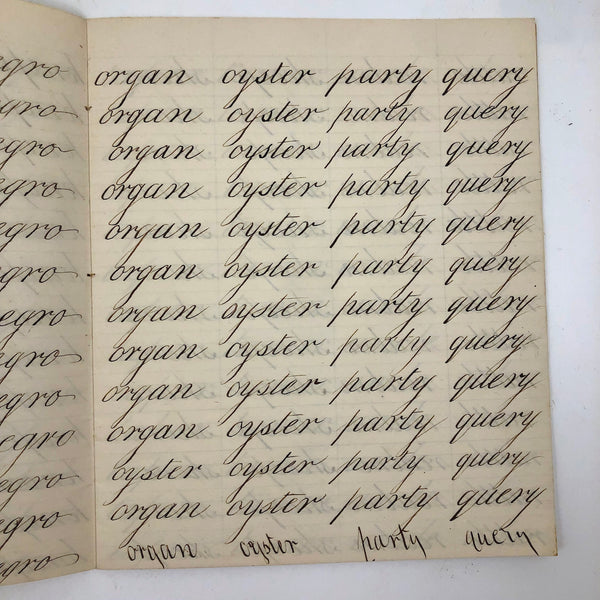 organ oyster party query
organ oyster party query
organ oyster party query
organ oyster party query
organ oyster party query
organ oyster party query
organ oyster party query
organ oyster party query
organ oyster party query
organ oyster party query
oyster oyster party query
organ oyster party query
organ oyster party query